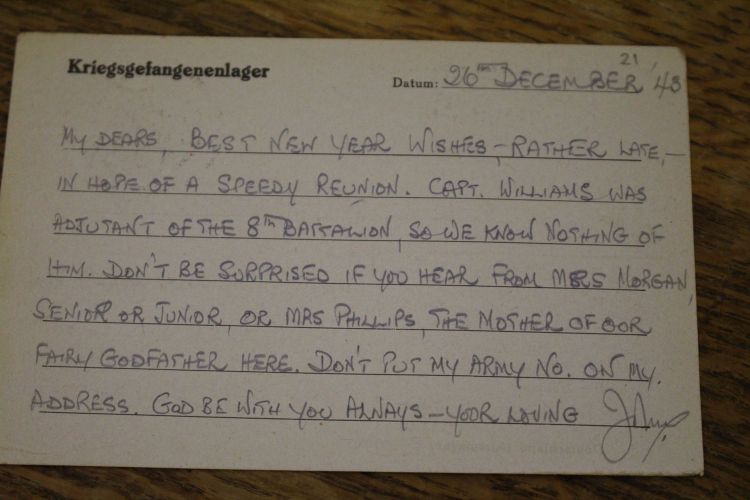 21
Kriegsgefangenenlager Datum: 26TH DECEMBER '43
MY DEARS, BEST NEW YEAR WISHES, - RATHER LATE, -
IN HOPE OF A SPEEDY REUNION. CAPT. WILLIAMS WAS
ADJUTANT OF THE 8TH BATTALION, SO WE KNOW NOTHING OF
HIM. DON'T BE SURPRISED IF YOU HEAR FROM MRS MORGAN,
SENIOR OR JUNIOR, OR MRS PHILLIPS, THE MOTHER OF OUR
FAIRY GODFATHER HERE. DON'T PUT MY ARMY NO. ON MY.
ADDRESS. GOD BE WITH YOU ALWAYS - YOUR LOVING